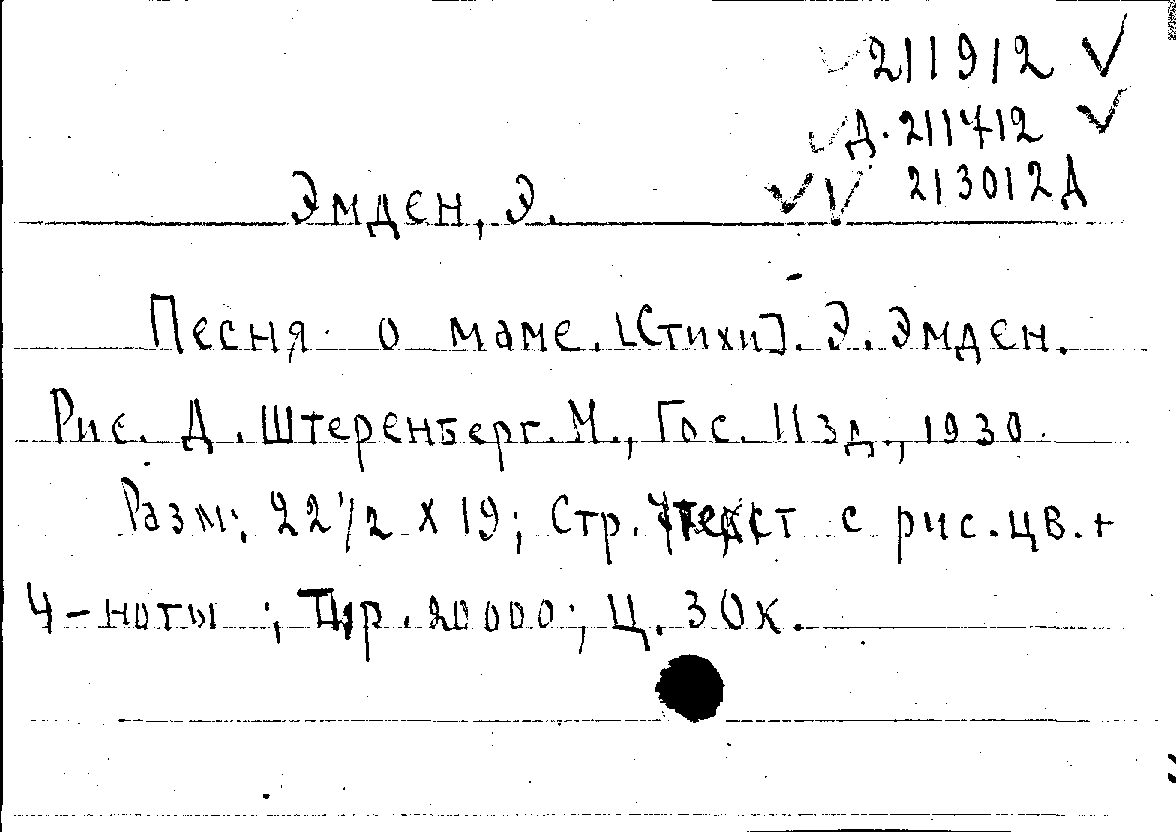 211912
Д. 211712
213012 Д
Эмден, Э.
Песня о маме. [Стихи]. Э. Эмден.
Рис. Д. Штеренберг. М., Гос. Изд., 1930.
Разм: 22 1/2 х 19; Стр. текст с рис. цв. +
4 - ноты ; Тир. 20000; Ц. 30к.